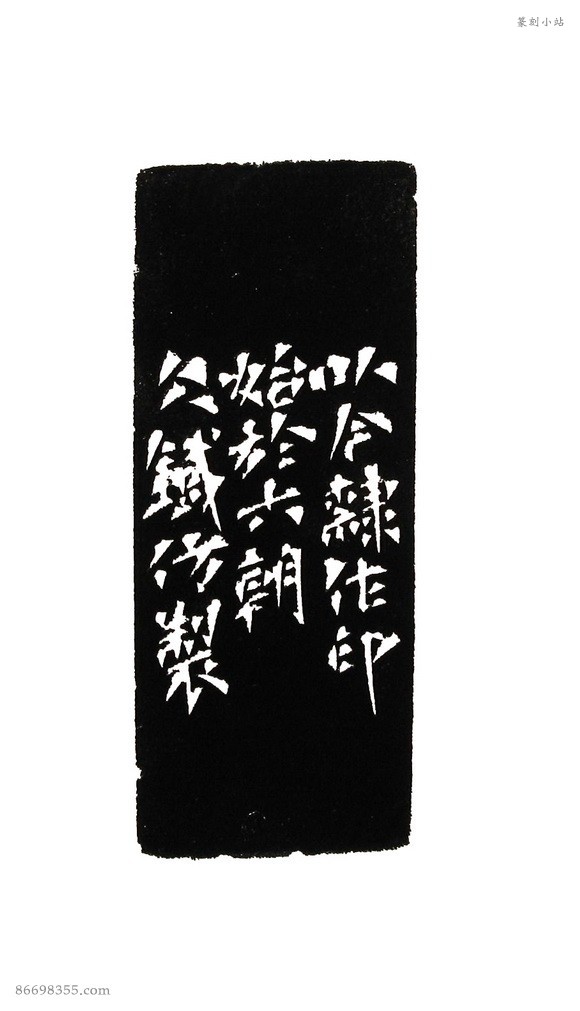 篆刻小站
以今隸作印
始於六朝
公鐵仿製
86698355.com